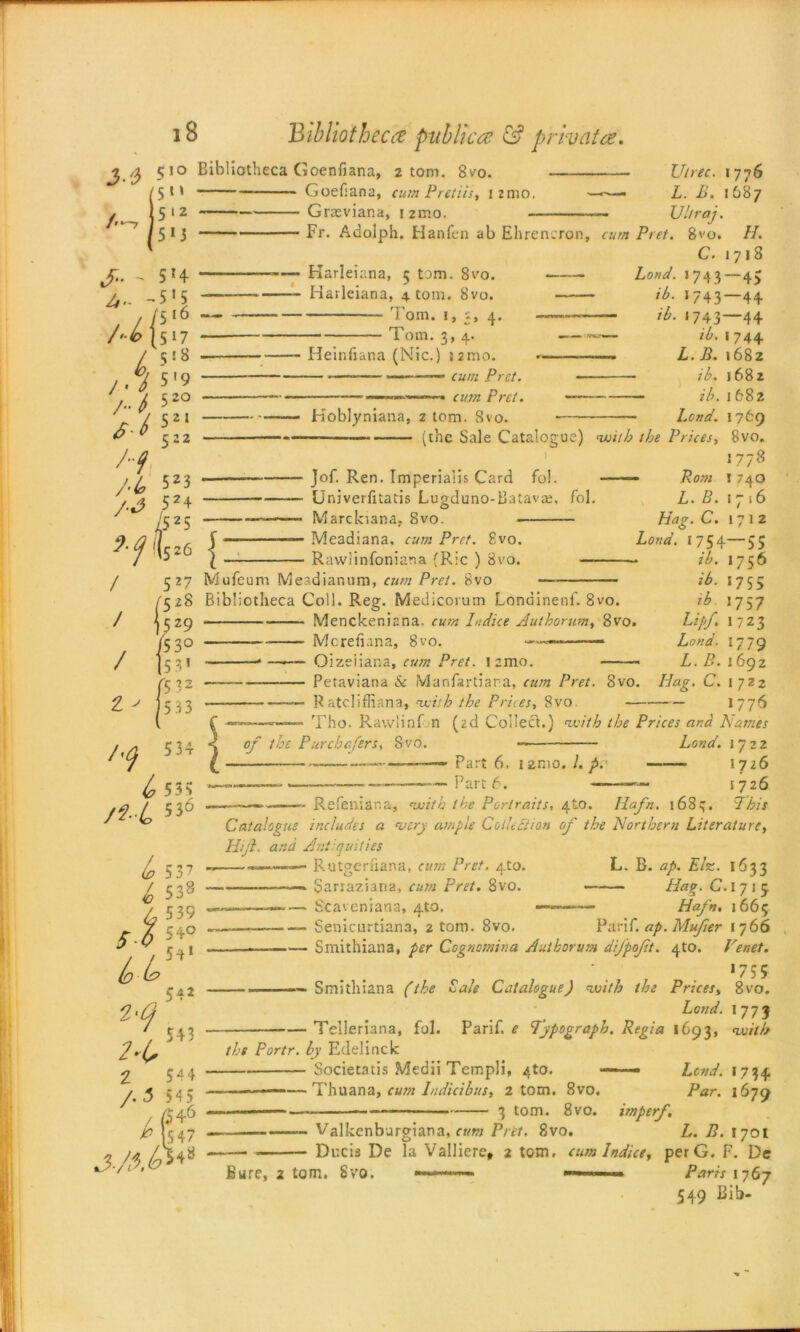 18 Bibliothecæ publicæ & privatæ.
3.3 510 Bibliotheca Goenſiana, 2 tom. 8vo. ——— Utrec. 1776
511 ——— Goeſiana, cum Pretiis, 12mo. —— L. B. 1687
512 ——— Græviana, 12mo. ——— Ultraj.
513 ——— Fr. Adolph. Hanſen ab Ehrencron, cum Pret. 8vo. H.
C. 1718
514 ——— Harleiana, 5 tom. 8vo. —— Lond. 1743—45
515 ——— Harleiana, 4 tom. 8vo. —— ib. 1743—44
516 ——— Tom. 1, 2, 4. ——— ib. 1743—44
1.6 517 ——— Tom. 3, 4. ——— ib. 1744
518 ——— Heinſiana (Nic.) 12mo. ——— L. B. 1682
519 ——— cum Pret. ——— ib. 1682
520 ——— cum Pret. ——— ib. 1682
521 ——— Hoblyniana, 2 tom. 8vo. ——— Lond. 1769
522 ——— (the Sale Catalogue) with the Prices, 8vo.
1778
523 ——— Joſ. Ren. Imperialis Card fol. —— Rom 1740
1.3 524 ——— Univerſitatis Lugduno-Batavæ, fol. L. B. 1716
525 ——— Marckiana, 8vo. ——— Hag. C. 1712
2.9 526 { ——— Meadiana, cum Pret. 8vo. Lond. 1754—55
{ ——— Rawlinſoniana (Ric ) 8vo. ——— ib. 1756
/ 527 Muſeum Meadianum, cum Pret. 8vo ——— ib. 1755
528 Bibliotheca Coll. Reg. Medicorum Londinenſ. 8vo. ib 1757
/ 529 ——— Menckeniana. cum Indice Authorum, 8vo. Lipſ. 1723
530 ——— Moreſiana, 8vo. ——— Lond. 1779
/ 531 ——— Oizeliana, cum Pret. 12mo. —— L. B. 1692
532 ——— Petaviana & Manſartiana, cum Pret. 8vo. Hag. C. 1722
533 ——— Ratcliffiana, with the Prices, 8vo ——— 1776
{ ——— Tho. Rawlinſon (2d Collect.) with the Prices and Names
1.9 534 { of the Purchaſers, 8vo. ——— Lond. 1722
{ ——— Part 6. 12mo. l. p. —— 1726
6 535 ——— Part 6. ——— 1726
12.6 536 ——— Reſeniana, with the Portraits, 4to. Hafn. 1685. This
Catalogue includes a very ample Collection of the Northern Literature,
Hiſt. and Antiquities
6 537 ——— Rutgerſiana, cum Pret. 4to. L. B. ap. Elz. 1633
6 538 ——— Sarraziana, cum Pret. 8vo. —— Hag. C. 1715
6 539 ——— Scaveniana, 4to. ——— Hafn. 1665
5.6 540 ——— Senicurtiana, 2 tom. 8vo. Pariſ. ap. Muſier 1766
541 ——— Smithiana, per Cognomina Authorum diſpoſit. 4to. Venet.
6.6 1755
542 ——— Smithiana (the Sale Catalogue) with the Prices, 8vo.
2.9 Lond. 1773
543 ——— Telleriana, fol. Pariſ. e Typograph. Regia 1693, with
2.6 the Portr. by Edelinck
2 544 ——— Societatis Medii Templi, 4to. —— Lond. 1734
1.3 545 ——— Thuana, cum Indicibus, 2 tom. 8vo. Par. 1679
546 ——— 3 tom. 8vo. imperf.
547 ——— Valkenburgiana, cum Pret. 8vo. L. B. 1701
3.13.6 548 ——— Ducis De la Valliere, 2 tom. cum Indice, per G. F. De
Bure, 2 tom. 8vo. ——— Paris 1767
549 Bib-